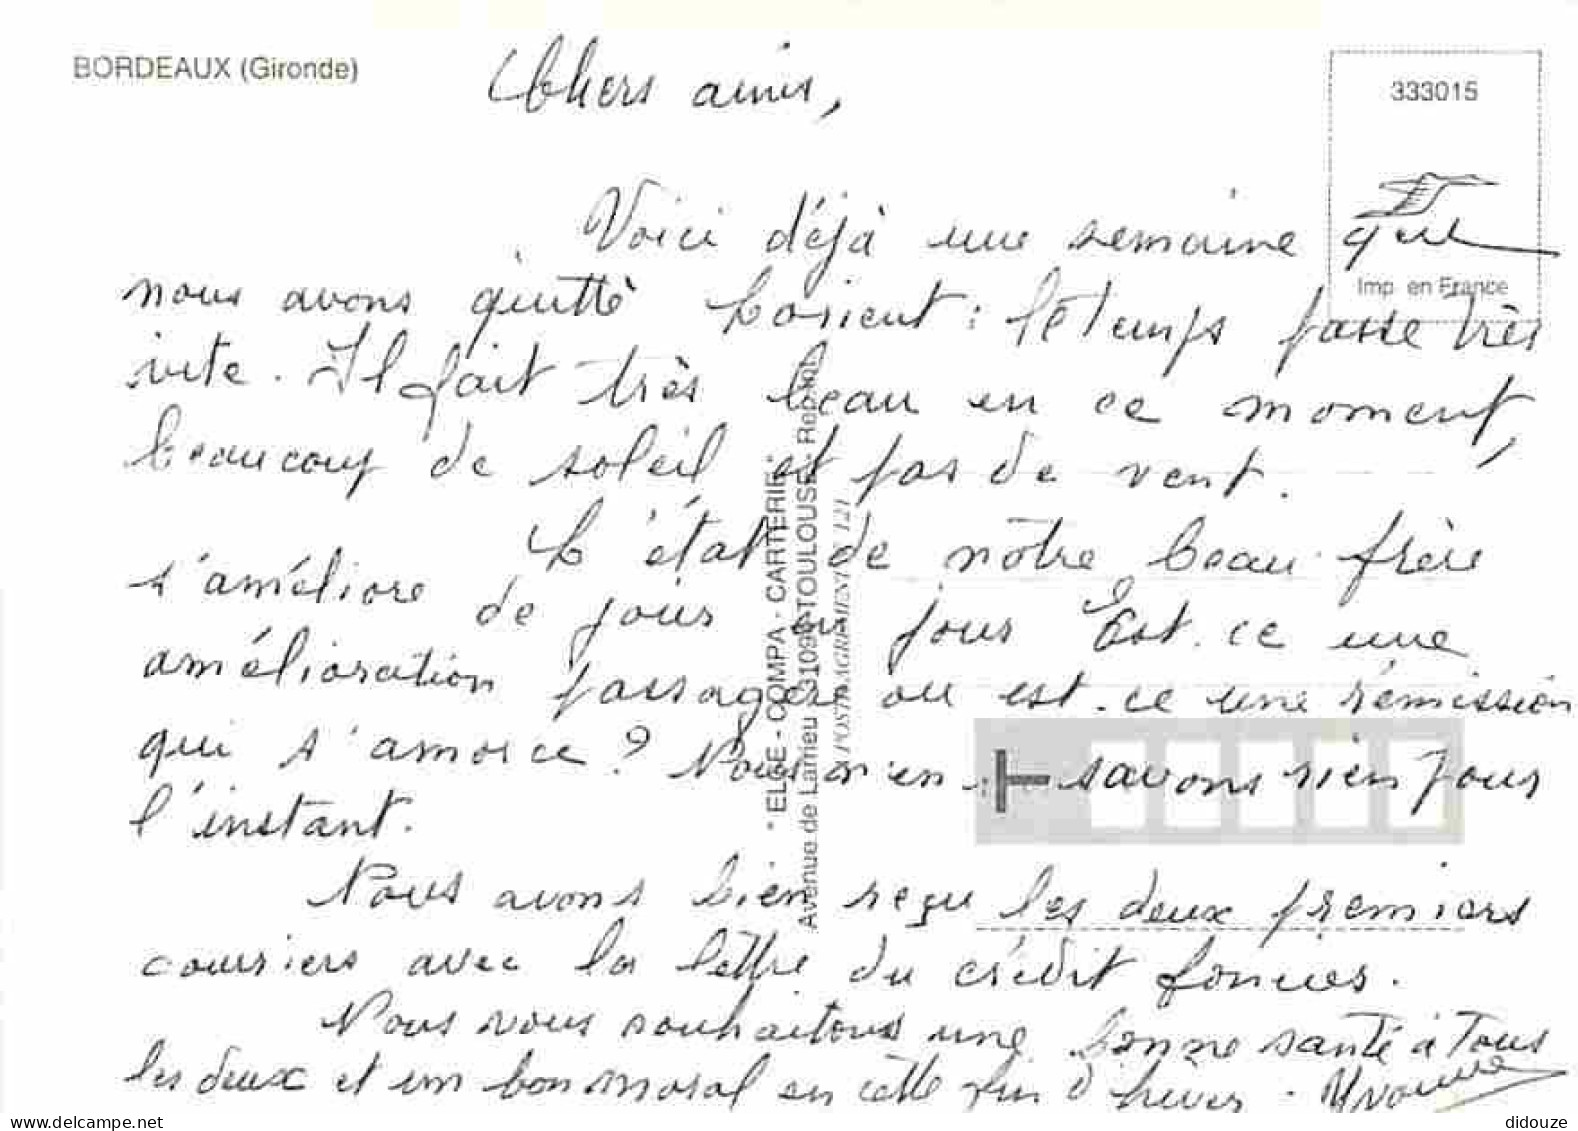 BORDEAUX (Gironde)
333015
Imp. en France
Chers amis,
Voici déjà une semaine que
nous avons quitté Lorient : le temps passe très
vite. Il fait très beau en ce moment,
beaucoup de soleil et pas de vent.
L'état de notre beau-frère
s'améliore de jour en jour Est-ce une
amélioration passagère ou est-ce une rémission
qui s'amorce ? Nous n'en savons rien pour
l'instant.
Nous avons bien reçu les deux premiers
courriers avec la lettre du crédit foncier.
Nous vous souhaitons une bonne santé à tous
les deux et un bon moral en cette fin d'hiver. Yvonne
" ELCE - COMPA - CARTERIE "
Avenue de Larrieu 31094 TOULOUSE - Repro Int.
POSTE AGREMENT N° 121
didouze
delcampe.net